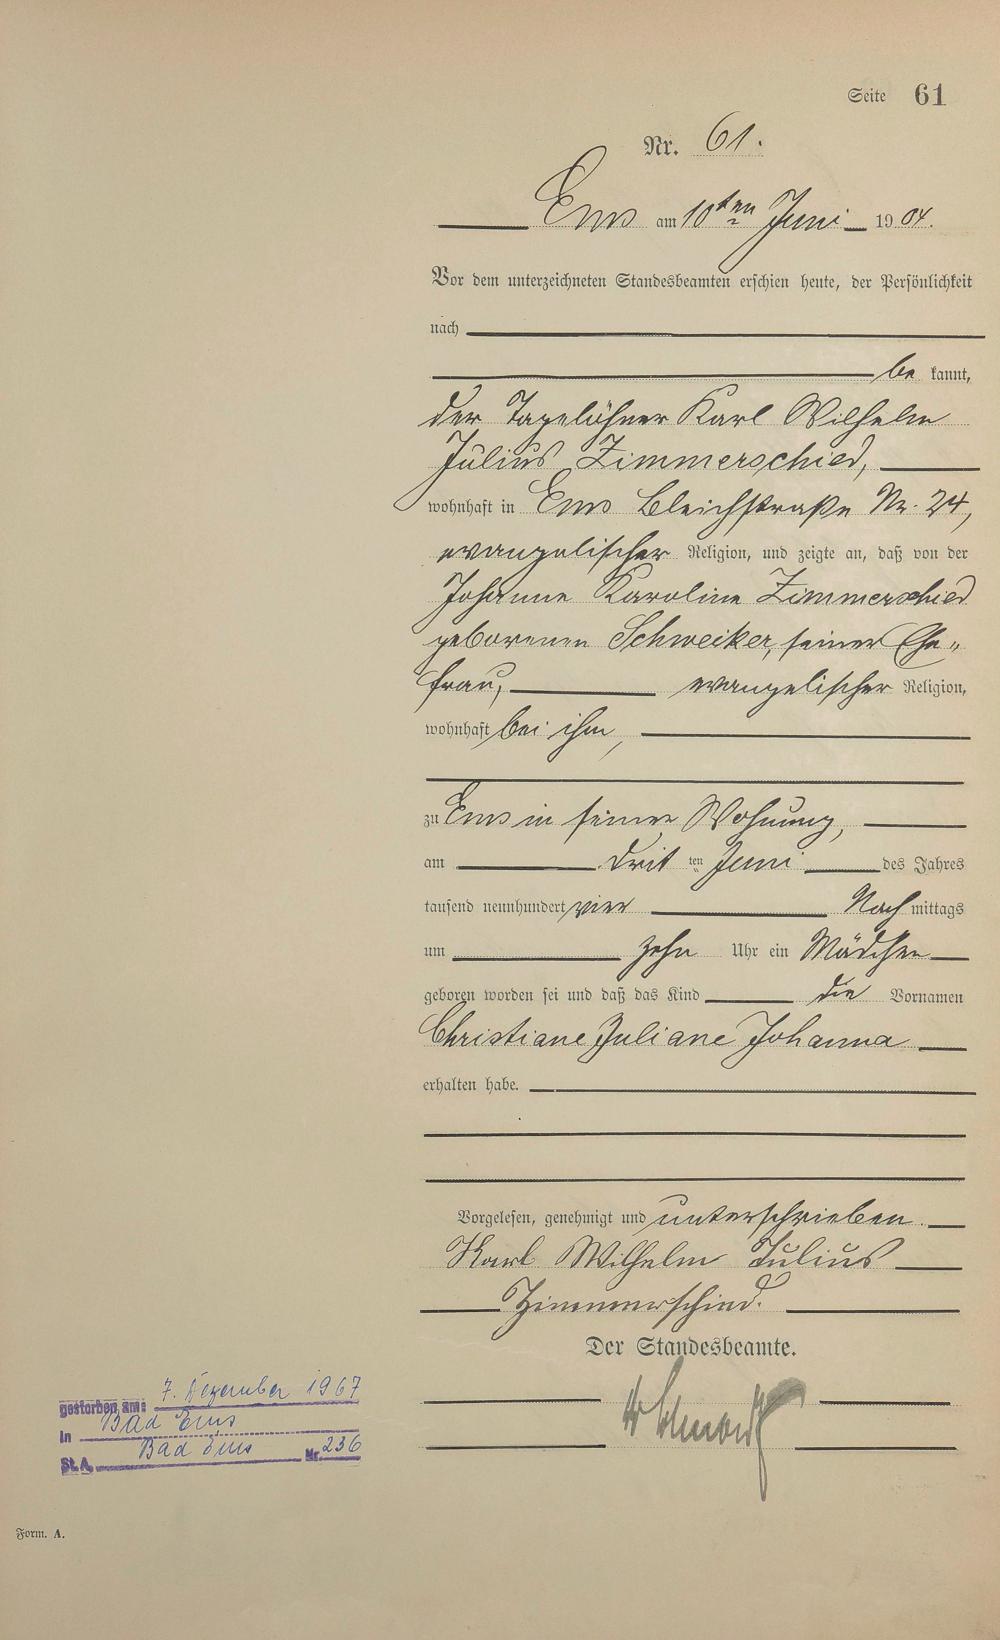 Seite 61
Nr. 61.
Ems am 10ten Juni 1904.
Vor dem unterzeichneten Standesbeamten erschien heute, der Persönlichkeit
nach
be kannt,
der Tagelöhner Karl Wilhelm
Julius Zimmerschied,
wohnhaft in Ems Bleichstraße Nr. 24,
evangelischer Religion, und zeigte an, daß von der
Johanne Karoline Zimmerschied
geborenen Schweiker, seiner Ehe-
frau, evangelischer Religion,
wohnhaft bei ihm,
zu Ems in seiner Wohnung,
am drit ten Juni des Jahres
tausend neunhundert vier Nach mittags
um zehn Uhr ein Mädchen
geboren worden sei und daß das Kind die Vornamen
Christiane Juliane Johanna
erhalten habe.
Vorgelesen, genehmigt und unterschrieben
Karl Wilhelm Julius
Zimmerschied.
Der Standesbeamte.
gestorben am: 7. Dezember 1967
in Bad Ems
St. A. Bad Ems Nr. 236
Form. A.